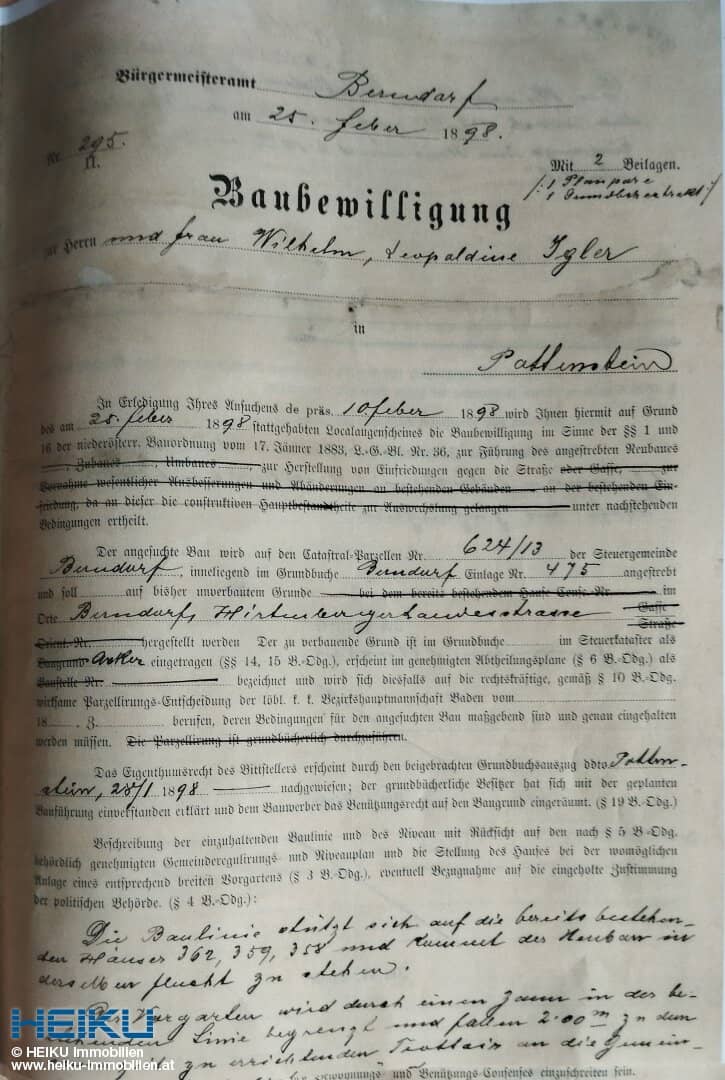 Bürgermeisteramt Berndorf
am 25. feber 1898.
Nr. 295.
II.
Mit 2 Beilagen.
/: 1 Planpare
1 Grundb:extrakt :/
Baubewilligung
für Herrn und frau Wilhelm, Leopoldine Igler
in
Pottenstein
In Erledigung Ihres Ansuchens de präs. 10. feber 1898 wird Ihnen hiermit auf Grund
des am 25. feber 1898 stattgehabten Localaugenscheines die Baubewilligung im Sinne der §§ 1 und
16 der niederösterr. Bauordnung vom 17. Jänner 1883, L.-G.-Bl. Nr. 36, zur Führung des angestrebten Neubaues
, Zubaues , Umbaues , zur Herstellung von Einfriedungen gegen die Straße oder Gasse, zur
Vornahme wesentlicher Ausbesserungen und Abänderungen an bestehenden Gebäuden an der bestehenden Ein-
friedung, da an dieser die constructiven Hauptbestandtheile zur Auswechslung gelangen unter nachstehenden
Bedingungen ertheilt.
Der angesuchte Bau wird auf den Catastral-Parzellen Nr. 624/13 der Steuergemeinde
Berndorf, inneliegend im Grundbuche Berndorf Einlage Nr. 475 angestrebt
und soll auf bisher unverbautem Grunde bei dem bereits bestehendem Hause Conse.-Nr. im
Orte Berndorf, Hirtenbergerlandesstrasse Gasse
Straße
Orient.-Nr. hergestellt werden Der zu verbauende Grund ist im Grundbuche im Steuerkataster als
Baugrund Acker eingetragen (§§ 14, 15 B.-Odg.), erscheint im genehmigten Abtheilungsplane (§ 6 B.-Odg.) als
Baustelle Nr. bezeichnet und wird sich diesfalls auf die rechtskräftige, gemäß § 10 B.-Odg.
wirksame Parzellirungs-Entscheidung der löbl. k. k. Bezirkshauptmannschaft Baden vom
18 , Z. berufen, deren Bedingungen für den angesuchten Bau maßgebend sind und genau eingehalten
werden müssen. Die Parzellirung ist grundbücherlich durchzuführen.
Das Eigenthumsrecht des Bittstellers erscheint durch den beigebrachten Grundbuchsauszug ddto Potten-
stein, 28/1 1898 nachgewiesen; der grundbücherliche Besitzer hat sich mit der geplanten
Bauführung einverstanden erklärt und dem Bauwerber das Benützungsrecht auf den Baugrund eingeräumt. (§ 19 B.-Odg.)
Beschreibung der einzuhaltenden Baulinie und des Niveau mit Rücksicht auf den nach § 5 B-Odg.
behördlich genehmigten Gemeinderegulirungs- und Niveauplan und die Stellung des Hauses bei der womöglichen
Anlage eines entsprechend breiten Vorgartens (§ 3 B.-Odg.), eventuell Bezugnahme auf die eingeholte Zustimmung
der politischen Behörde. (§ 4 B.-Odg.):
Die Baulinie stützt sich auf die bereits bestehen-
den Häuser 362, 359, 358 und kommet der Neubau in
derselben flucht zu stehen.
Der Vorgarten wird durch einen Zaun in der be-
stehenden Linie begrenzt und fallen 2.00 m zu dem
zu errichtenden Trottoir an die Gemein-
Wohnungs- und Benützungs-Consenses einzuschreiten sein.
HEIKU
IMMOBILIEN
© HEIKU Immobilien
www.heiku-Immobilien.at